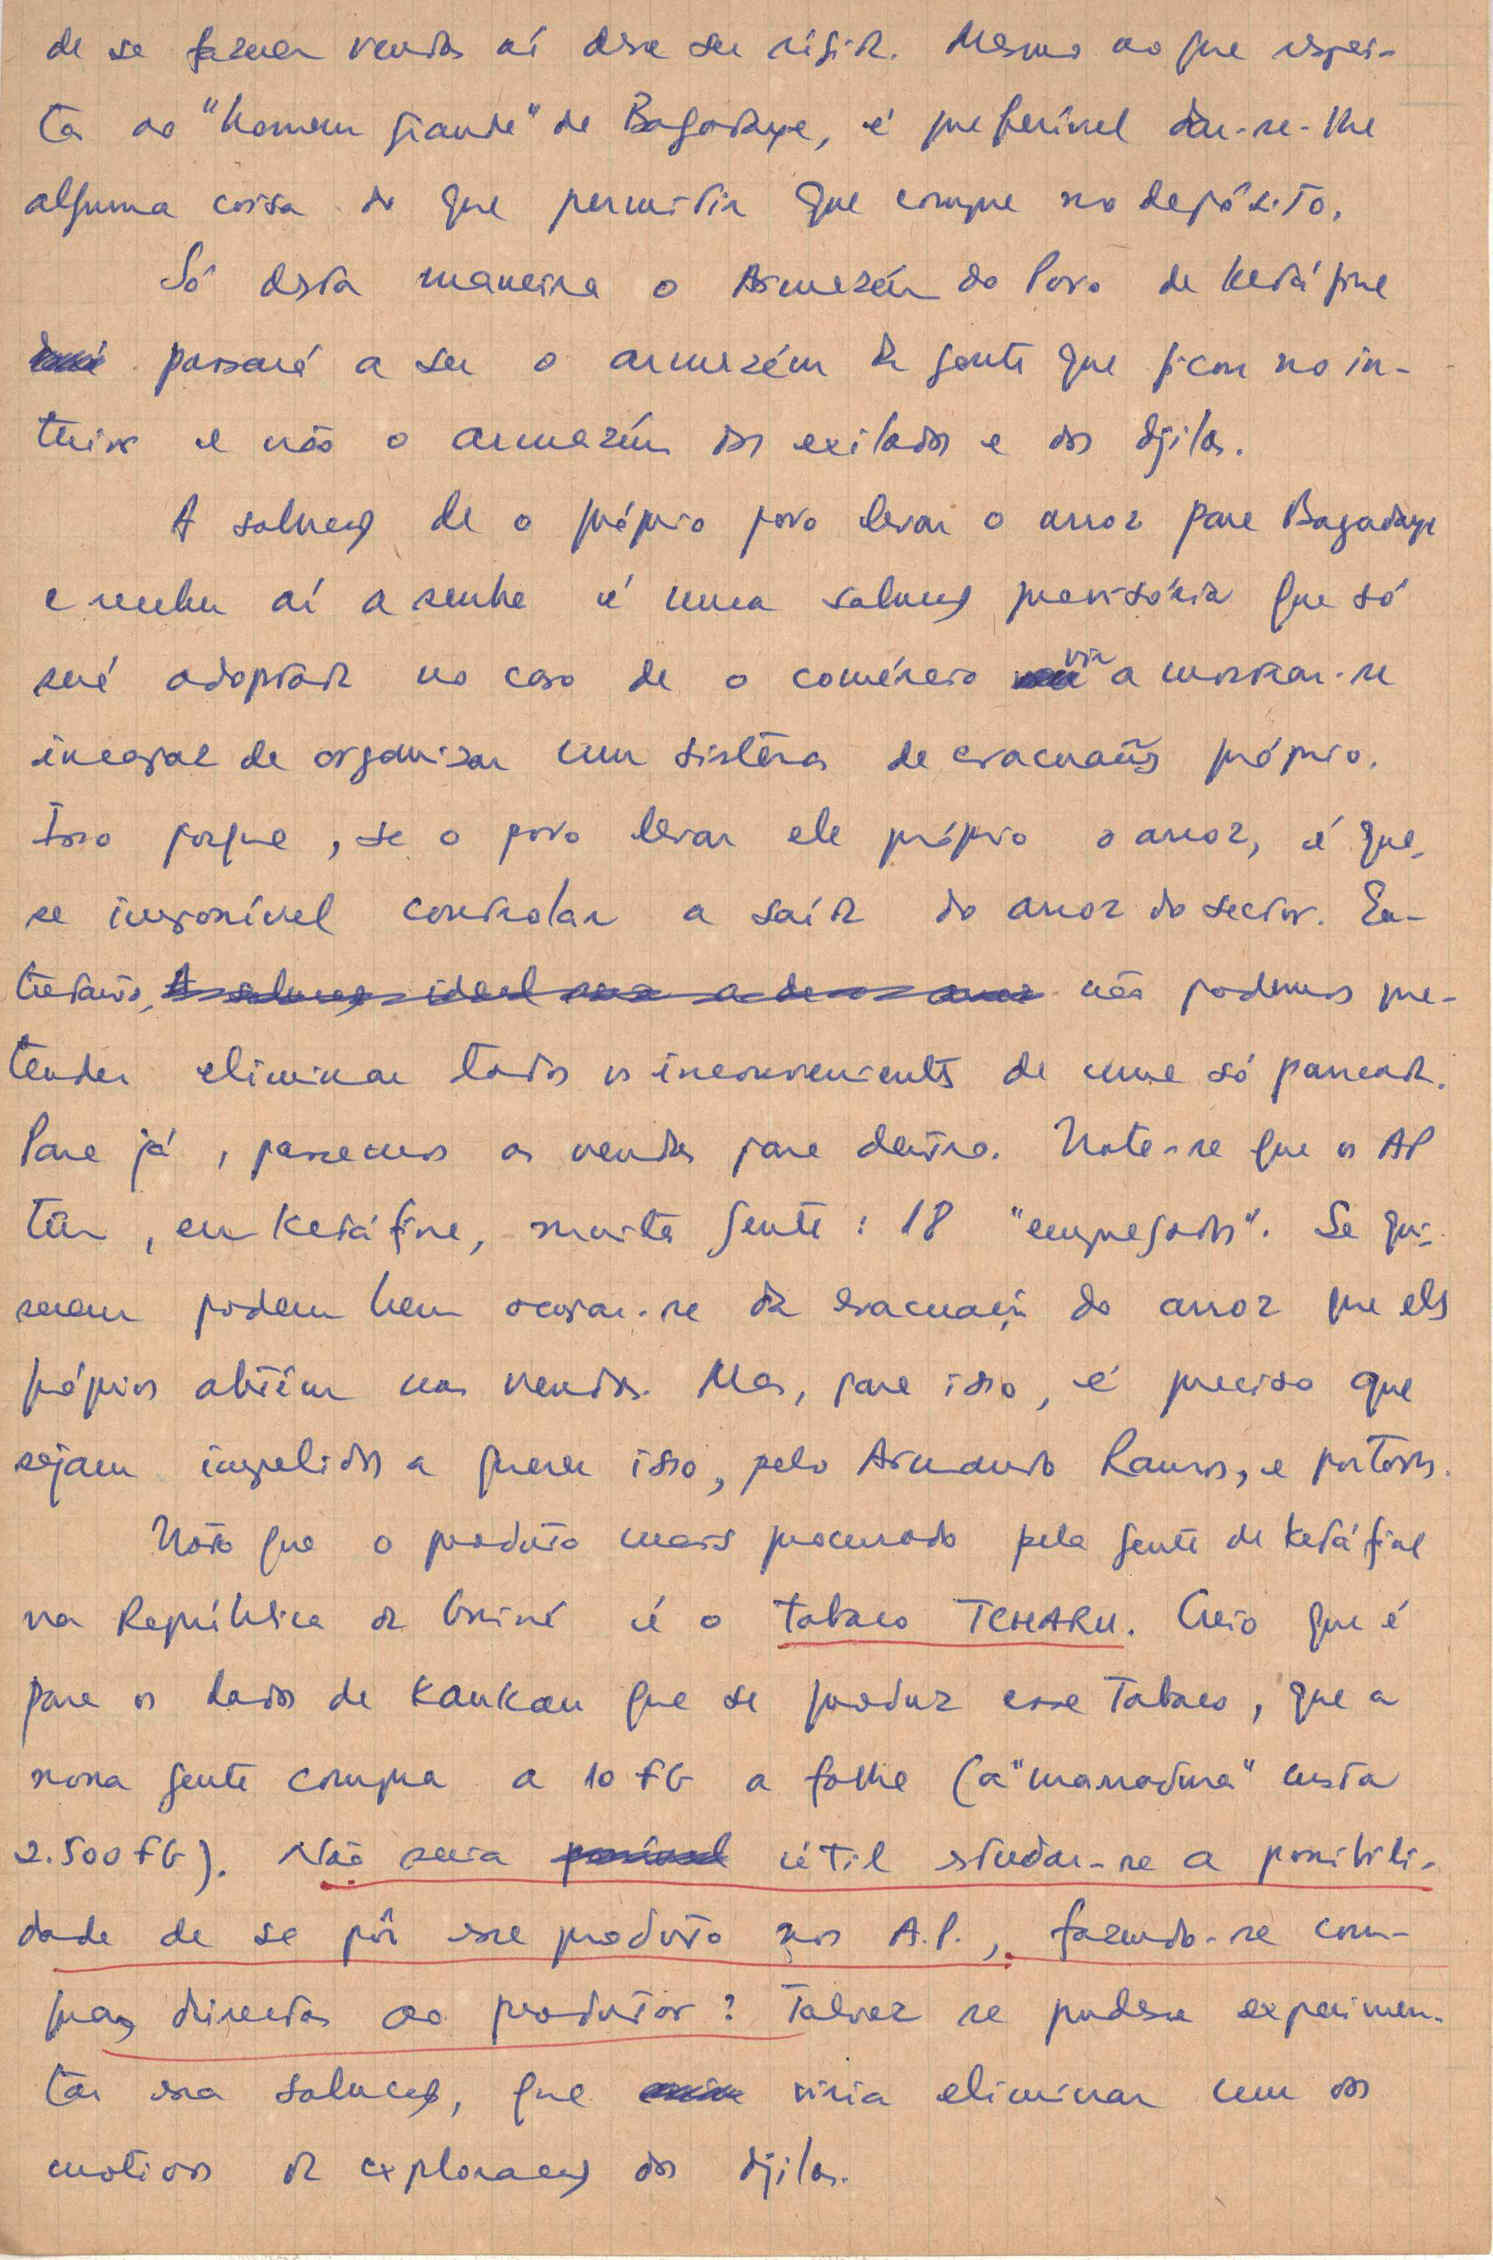 de se fazerem vendas aí deve ser rígida. Mesmo no que respei-
ta ao "homem grande" de Bagadaye, é preferível dar-se-lhe
alguma coisa do que permitir que compre no depósito.
Só desta maneira o Armazém do Povo de Ketáfine
passará a ser o armazém da gente que ficou no in-
terior e não o armazém dos exilados e dos djilas.
A solução de o próprio povo levar o arroz para Bagadaye
e receber aí a senha é uma solução provisória que só
será adoptada no caso de o comércio vir a mostrar-se
incapaz de organizar um sistema de evacuação próprio.
Isso porque, se o povo levar ele próprio o arroz, é qua-
se impossível controlar a saída do arroz do sector. En-
tretanto, A solução ideal era a de o arroz não podemos pre-
tender eliminar todos os inconvenientes de uma só pancada.
Para já, passemos as vendas para dentro. Note-se que os AP
têm, em Ketáfine, muita gente: 18 "empregados". Se qui-
serem podem bem ocupar-se da evacuação do arroz que eles
próprios obtêm nas vendas. Mas, para isso, é preciso que
sejam impelidos a querer isso, pelo Armando Ramos, e portos.
Noto que o produto mais procurado pela gente de Ketáfine
na República da Guiné é o tabaco TCHARU. Creio que é
para os lados de Kankan que se produz esse tabaco, que a
nossa gente compra a 10 FG a folha (a "marradura" custa
2.500 FG). Não seria possível útil estudar-se a possibili-
dade de se pôr esse produto nos A.P., fazendo-se com-
pras directas ao produtor? Talvez se pudesse experimen-
tar essa solução, que viria eliminar um dos
motivos da exploração dos djilas.